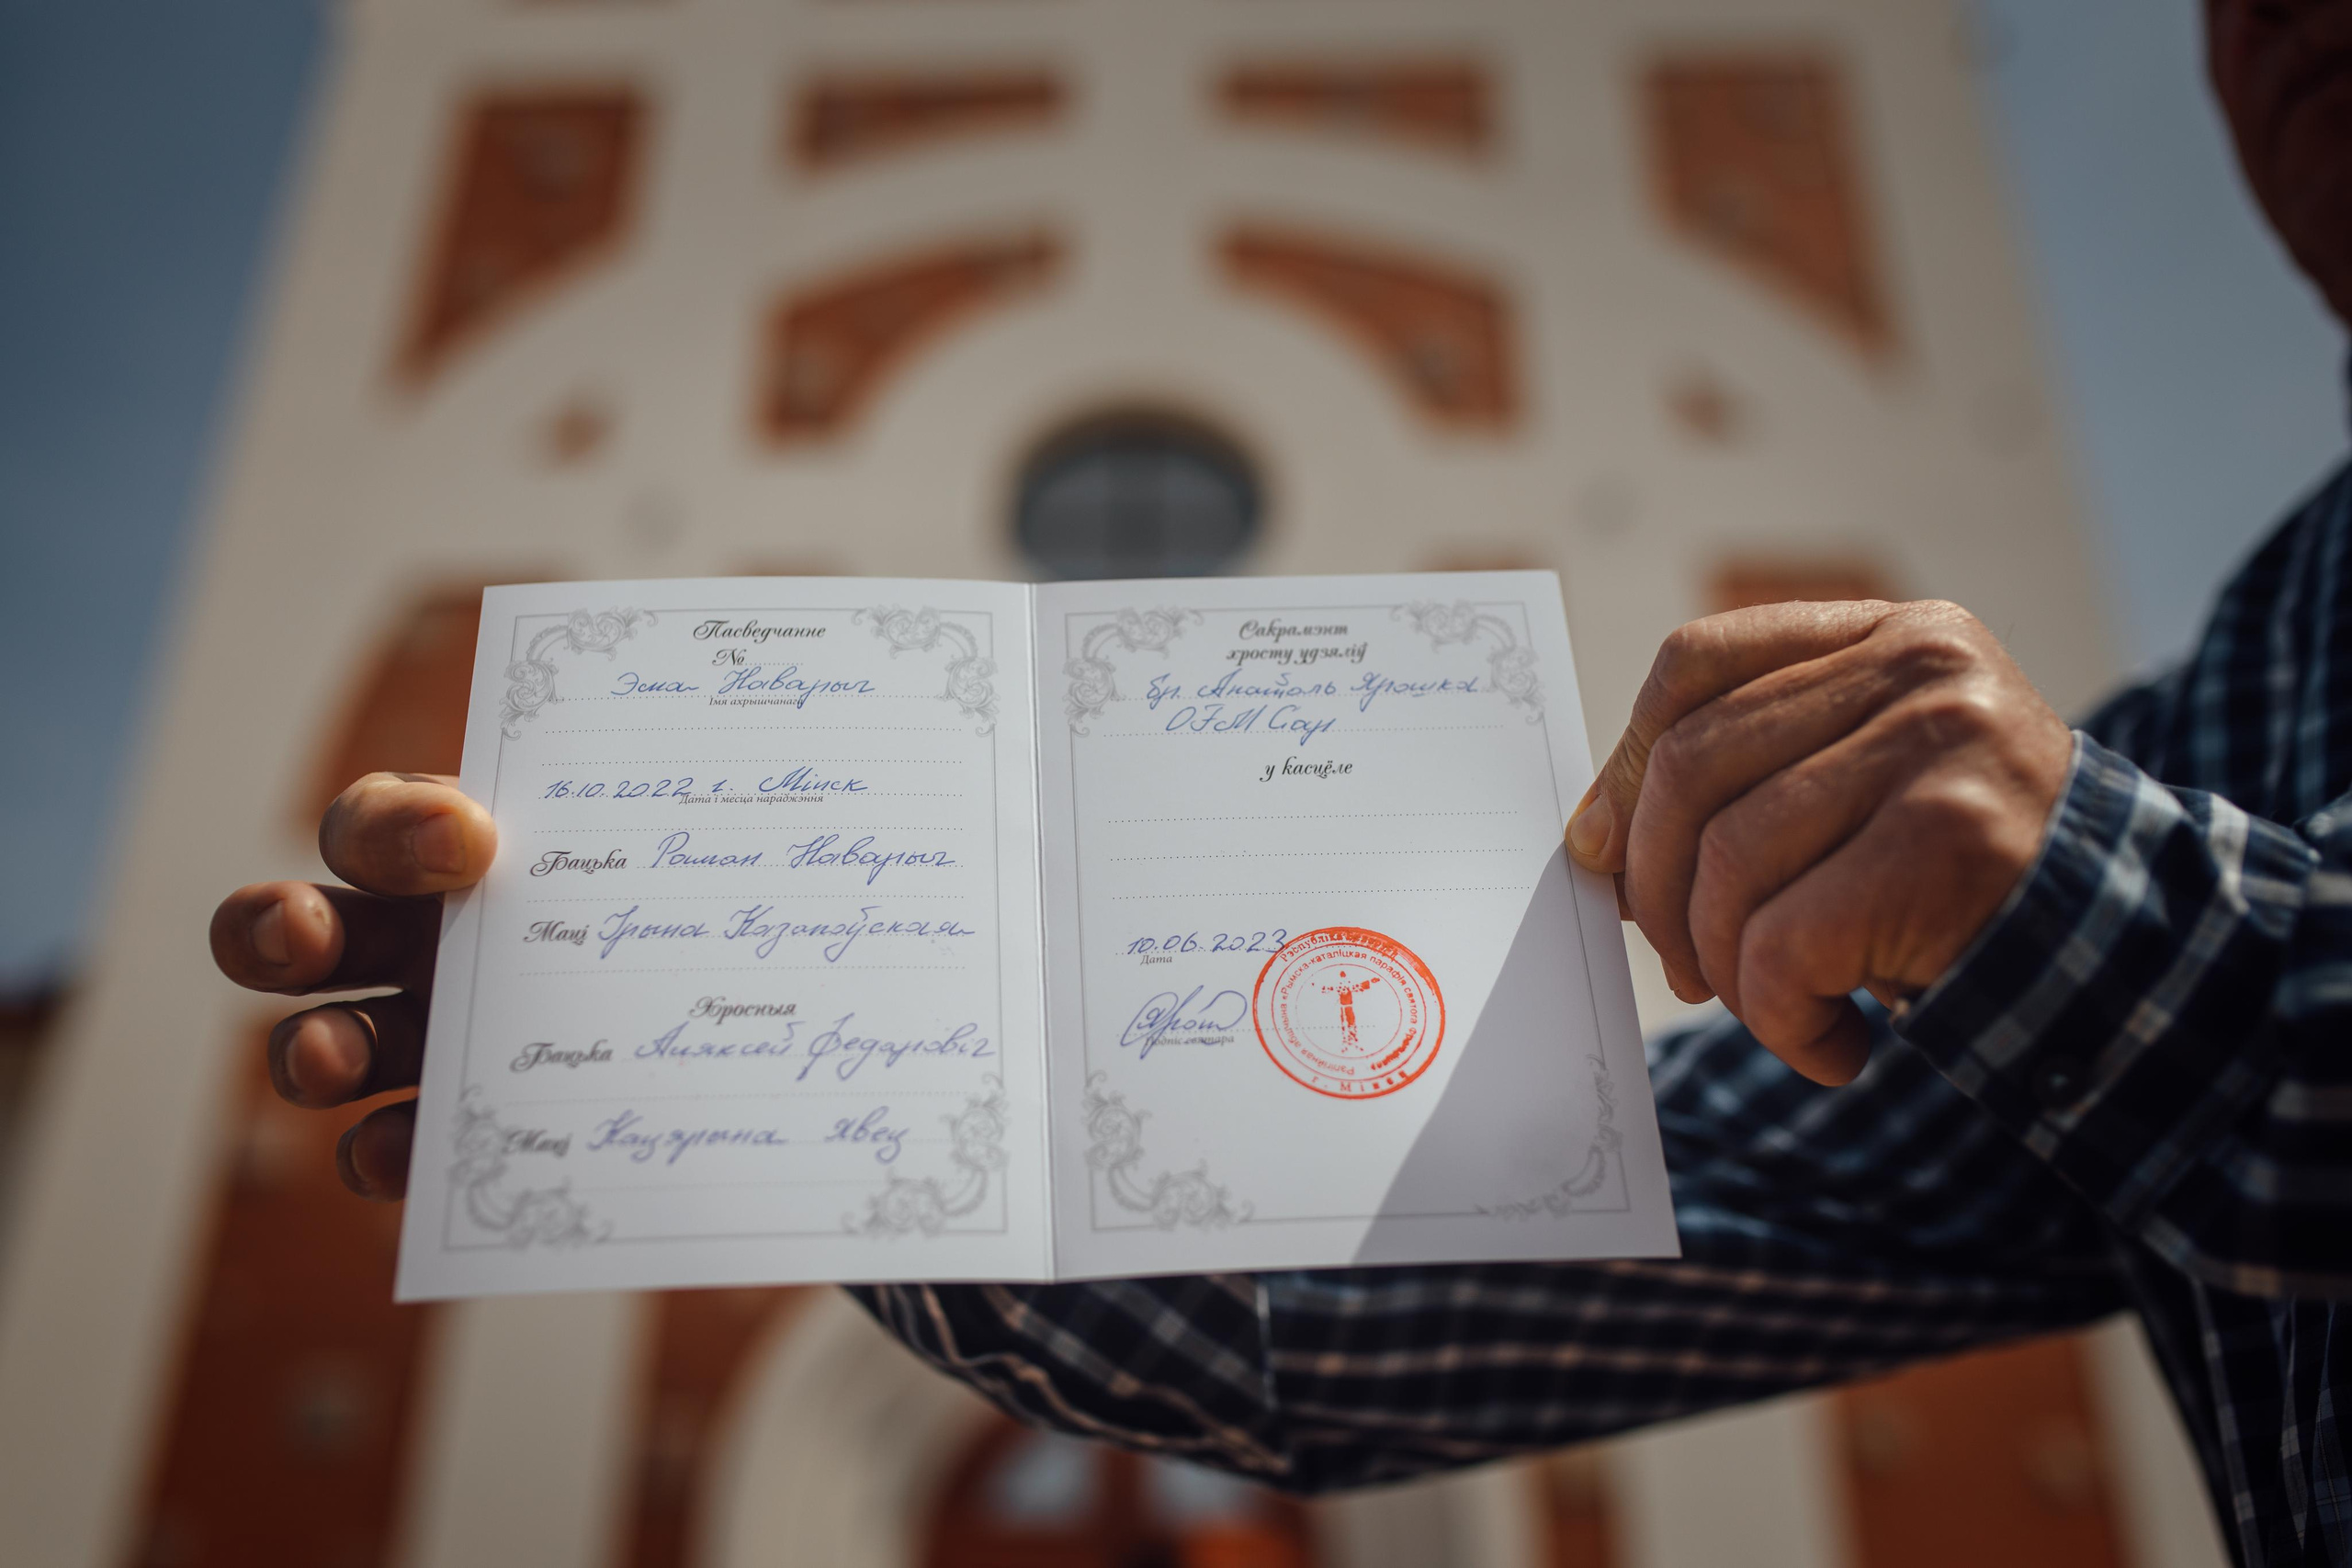 Пасведчанне
№
Эма Наварыч
Імя ахрышчанага
16.10.2022 г. Мінск
Дата і месца нараджэння
Бацька Раман Наварыч
Маці Ірына Казапоўская
Хросныя
Бацька Аляксей Федаровіч
Маці Кацярына Явец
Сакрамэнт
хросту удзяліў
бр. Анатоль Ярошка
OFM Cap
у касцёле
10.06.2023
Дата
Подпіс святара
Рэспубліка Беларусь
Рэлігійная абшчына «Рымска-каталіцкая парафія святога
г. Мінск